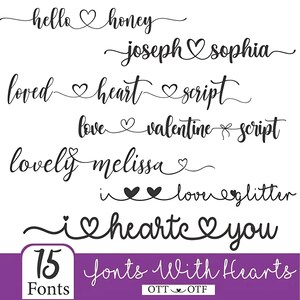 hello honey
joseph sophia
loved heart script
love valentine script
lovely melissa
i love glitter
i heart you
15 Fonts
Fonts With Hearts
OTT OTF